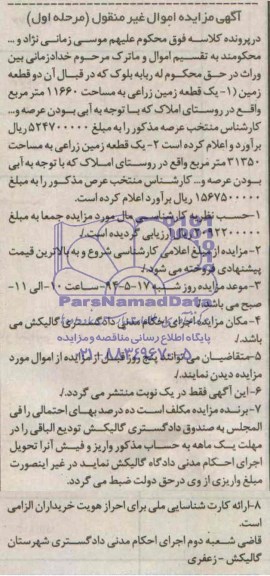 آگهی مزایده اموال غیر منقول (مرحله اول)
درپرونده کلاسه فوق محکوم علیهم موسی زمانی نژاد و ...
محکومند به تقسیم اموال و ماترک مرحوم خدادزمانی بین
وراث در حق محکوم له ربابه بلوک که در قبال آن دو قطعه
زمین (۱- یک قطعه زمین زراعی به مساحت ۱۱۶۶۰ متر مربع
واقع در روستای املاک که با توجه به آبی بودن عرصه و...
کارشناس منتخب عرصه مذکور را به مبلغ ۵۲۴۷۰۰۰۰۰ ریال
برآورد و اعلام کرده است ۲- یک قطعه زمین زراعی به مساحت
۳۱۳۵۰ متر مربع واقع در روستای املاک که با توجه به آبی
بودن عرصه و... کارشناس منتخب عرص مذکور را به مبلغ
۱۵۶۷۵۰۰۰۰۰ ریال برآورد اعلام کرده است.
۱- حسب نظریه کارشناسی مورد مزایده جمعا به مبلغ
۲۰۹۲۲۰۰۰۰۰ ریال ارزیابی گردیده است./
۲- مزایده از مبلغ اعلامی کارشناسی شروع و به بالاترین قیمت
پیشنهادی فروخته می شود./
۳- موعد مزایده روز شنبه ۱۷-۵-۹۴ - ساعت ۱۰ - الی ۱۱-
صبح می باشد./
ParsNamadData
۴- مکان مزایده اجرای احکام مدنی دادگستری گالیکش می
باشد./
پایگاه اطلاع رسانی مناقصه و مزایده
۰۲۱-۸۸۳۴۹۶۷۰-۵
۵- متقاضیان می توانند پنج روز قبل از مزایده از اموال مورد
مزایده دیدن نمایند./
۶- این آگهی فقط در یک نوبت منتشر می گردد./
۷- برنده مزایده مکلف است ده درصد بهای احتمالی را فی
المجلس به صندوق دادگستری گالیکش تودیع الباقی را در
مهلت یک ماهه به حساب مذکور واریز و فیش آنرا تحویل
اجرای احکام مدنی دادگاه گالیکش نماید در غیر اینصورت
مبلغ واریزی از وی درحق دولت ضبط می گردد.
۸- ارائه کارت شناسایی ملی برای احراز هویت خریداران الزامی
است.
قاضی شعبه دوم اجرای احکام مدنی دادگستری شهرستان
گالیکش - زعفری